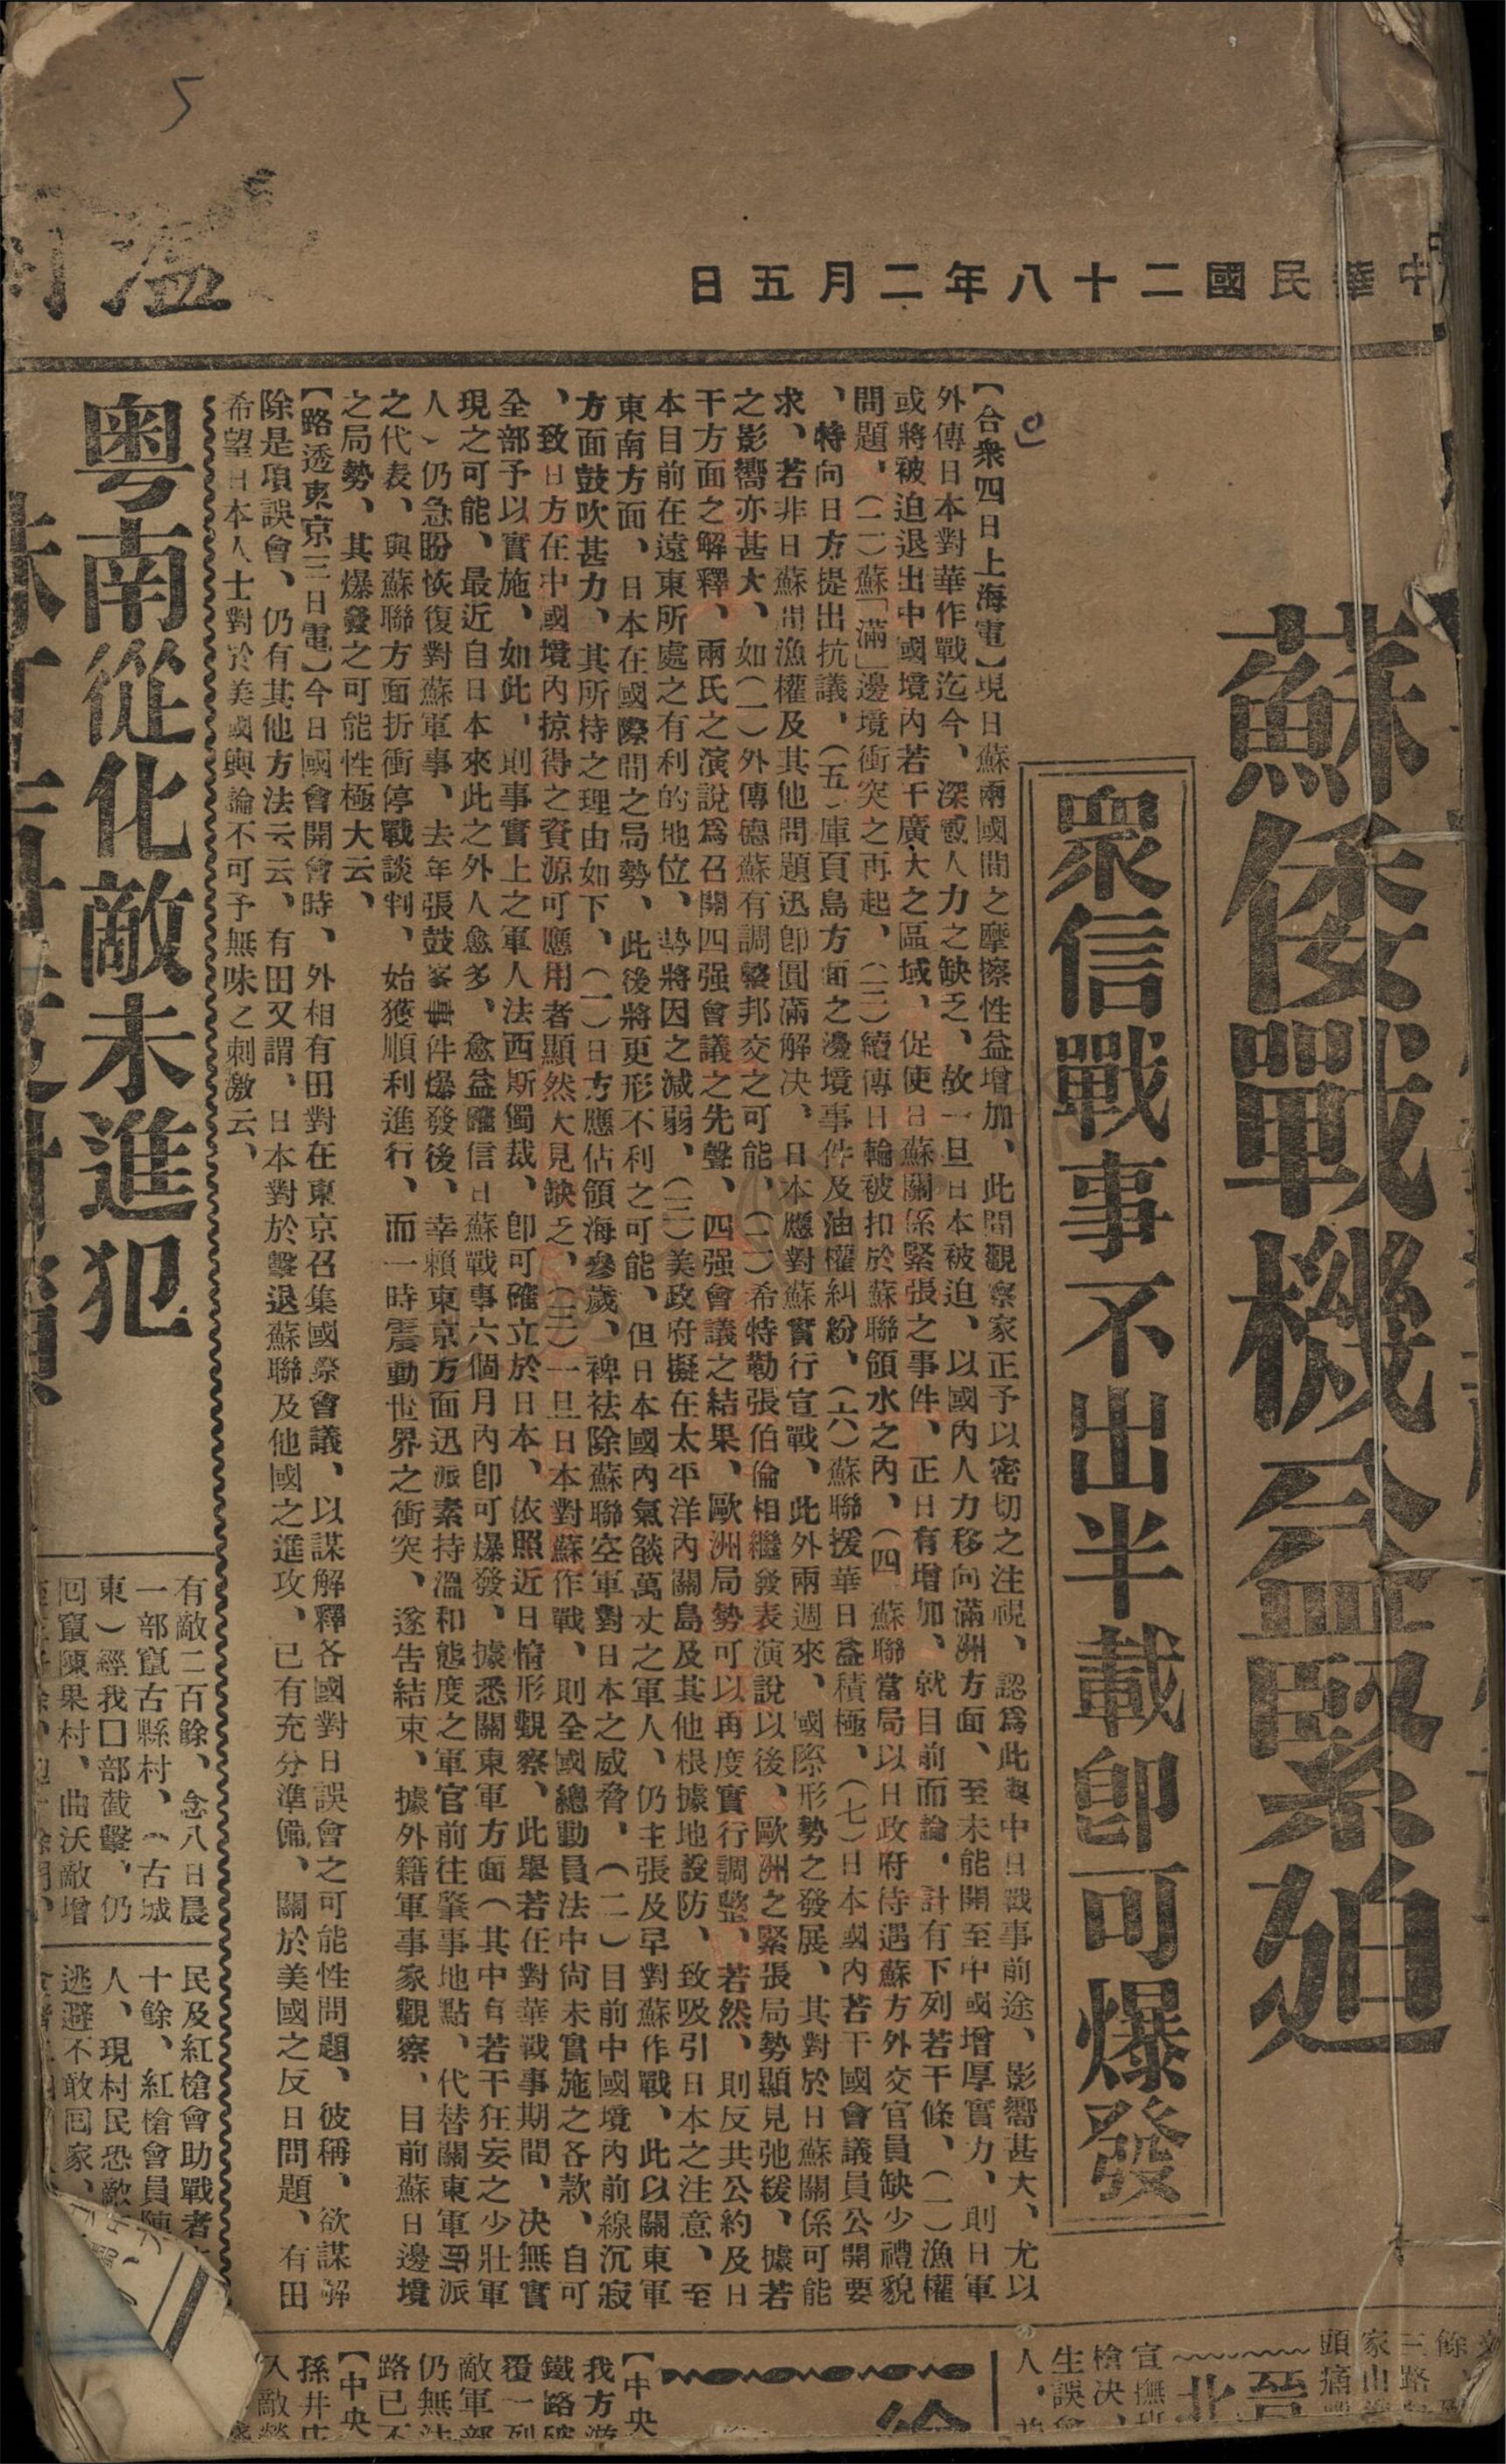 5
中華民國二十八年二月五日
蘇倭戰機益緊迫
衆信戰事不出半載即可爆發
【合衆四日上海電】現日蘇兩國間之摩擦性益增加、此間觀察家正予以密切之注視、認爲此與中日戰事前途、影嚮甚大、尤以
外傳日本對華作戰迄今、深感人力之缺乏、故一旦日本被迫、以國內人力移向滿洲方面、至未能開至中國增厚實力、則日軍
或將被迫退出中國境內若干廣大之區域、促使日蘇關係緊張之事件、正日有增加、就目前而論、計有下列若干條、(一)漁權
問題、(二)蘇「滿」邊境衝突之再起、(三)續傳日輪被扣於蘇聯領水之內、(四)蘇聯當局以日政府待遇蘇方外交官員缺少禮貌
、特向日方提出抗議、(五)庫頁島方面之邊境事件及油權糾紛、(六)蘇聯援華日益積極、(七)日本國內若干國會議員公開要
求、若非日蘇間漁權及其他問題迅即圓滿解决、日本應對蘇實行宣戰、此外兩週來、國際形勢之發展、其對於日蘇關係可能
之影嚮亦甚大、如(一)外傳德蘇有調整邦交之可能、(二)希特勒張伯倫相繼發表演說以後、歐洲之緊張局勢顯見弛緩、據若
干方面之解釋、兩氏之演說爲召開四强會議之先聲、四强會議之結果、歐洲局勢可以再度實行調整、若然、則反共公約及日
本目前在遠東所處之有利的地位、勢將因之減弱、(三)美政府擬在太平洋內關島及其他根據地設防、致吸引日本之注意、至
東南方面、日本在國際間之局勢、此後將更形不利之可能、但日本國內氣燄萬丈之軍人、仍主張及早對蘇作戰、此以關東軍
方面鼓吹甚力、其所持之理由如下、(一)日方應佔領海參崴、裨祛除蘇聯空軍對日本之威脅、(二)目前中國境內前線沉寂
、致日方在中國境內掠得之資源可應用者顯然大見缺乏、(三)一旦日本對蘇作戰、則全國總動員法中尙未實施之各款、自可
全部予以實施、如此、則事實上之軍人法西斯獨裁、即可確立於日本、依照近日情形觀察、此舉若在對華戰事期間、决無實
現之可能、最近自日本來此之外人愈多、愈益確信日蘇戰事六個月內即可爆發、據悉關東軍方面(其中有若干狂妄之少壯軍
人)仍急盼恢復對蘇軍事、去年張鼓峯事件爆發後、幸賴東京方面迅派素持溫和態度之軍官前往肇事地點、代替關東軍所派
之代表、與蘇聯方面折衝停戰談判、始獲順利進行、而一時震動世界之衝突、遂告結束、據外籍軍事家觀察、目前蘇日邊境
之局勢、其爆發之可能性極大云、
【路透東京三日電】今日國會開會時、外相有田對在東京召集國際會議、以謀解釋各國對日誤會之可能性問題、彼稱、欲謀解
除是項誤會、仍有其他方法云云、有田又謂、日本對於擊退蘇聯及他國之進攻、已有充分準備、關於美國之反日問題、有田
希望日本人士對於美國輿論不可予無味之刺激云、
粵南從化敵未進犯
有敵二百餘、念八日晨
一部竄古縣村、(古城
東)經我口部截擊、仍
回竄陳果村、曲沃敵增
民及紅槍會助戰者
十餘、紅槍會員陣
人、現村民恐敵
逃避不敢回家、
餘
三路
家山
頭痛
晉
北
宣撫
槍决、
生誤會
人、
【中央
我方游
鐵路破
覆一列
敵軍部
仍無法
路已不
【中央
孫井庄
入敵營